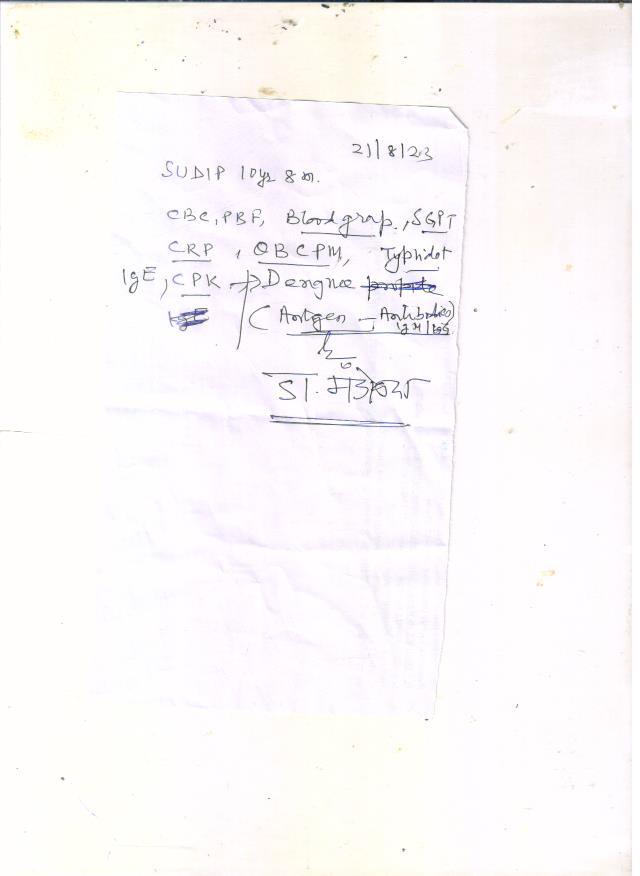 21/8/23
SUDIP 10yr 8m.
CBC, PBF, Blood group, SGPT
CRP, QBCPM, Typhidot
IgE, CPK → Dengue
(Antigen – Antibodies)
IgM/IgG
डा.